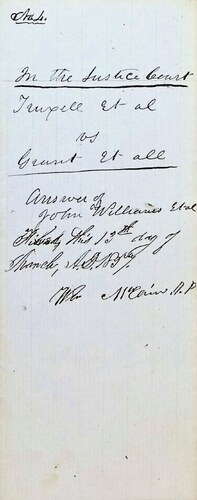 No 4.
In the Justice Court
Truxell Et al
vs
Grant Et all
Answer of
John Williams Et al
this 13th day of
March, A.D. 
Wm McCain J.P.